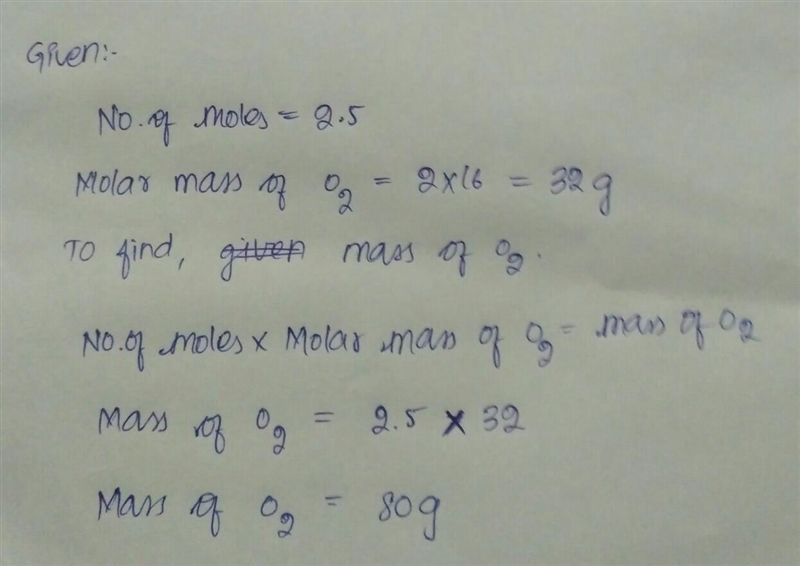 Given:-
No. of moles = 2.5
Molar mass of O2 = 2×16 = 32g
To find, given mass of O2.
No. of moles × Molar mass of O2 = mass of O2
Mass of O2 = 2.5 × 32
Mass of O2 = 80g